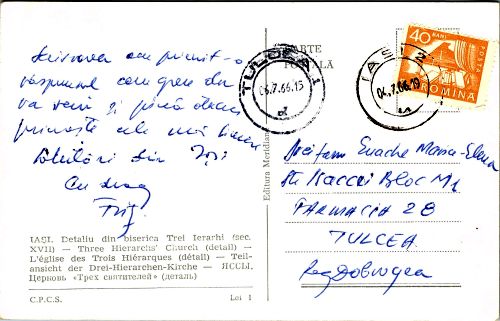 CARTE POȘTALĂ
TULCEA 1
04.7.66.15
IAȘI 2
04.7.66.19
40 BANI
POSTA
ROMINA
Scrisoarea am primit-o
răspunsul
va veni și până atunci
primește cele mai bune
salutări din Iași
Cu drag
Editura Meridiane
Enache Maria-Elena
Str Bacău Bloc M1
FARMACIA 28
TULCEA
Reg Dobrogea
IAȘI. Detaliu din biserica Trei Ierarhi (sec.
XVII) — Three Hierarchs' Church (detail) —
L'église des Trois Hiérarques (détail) — Teil-
ansicht der Drei-Hierarchen-Kirche — ЯССЫ.
Церковь «Трех святителей» (деталь)
C.P.C.S.
Lei 1